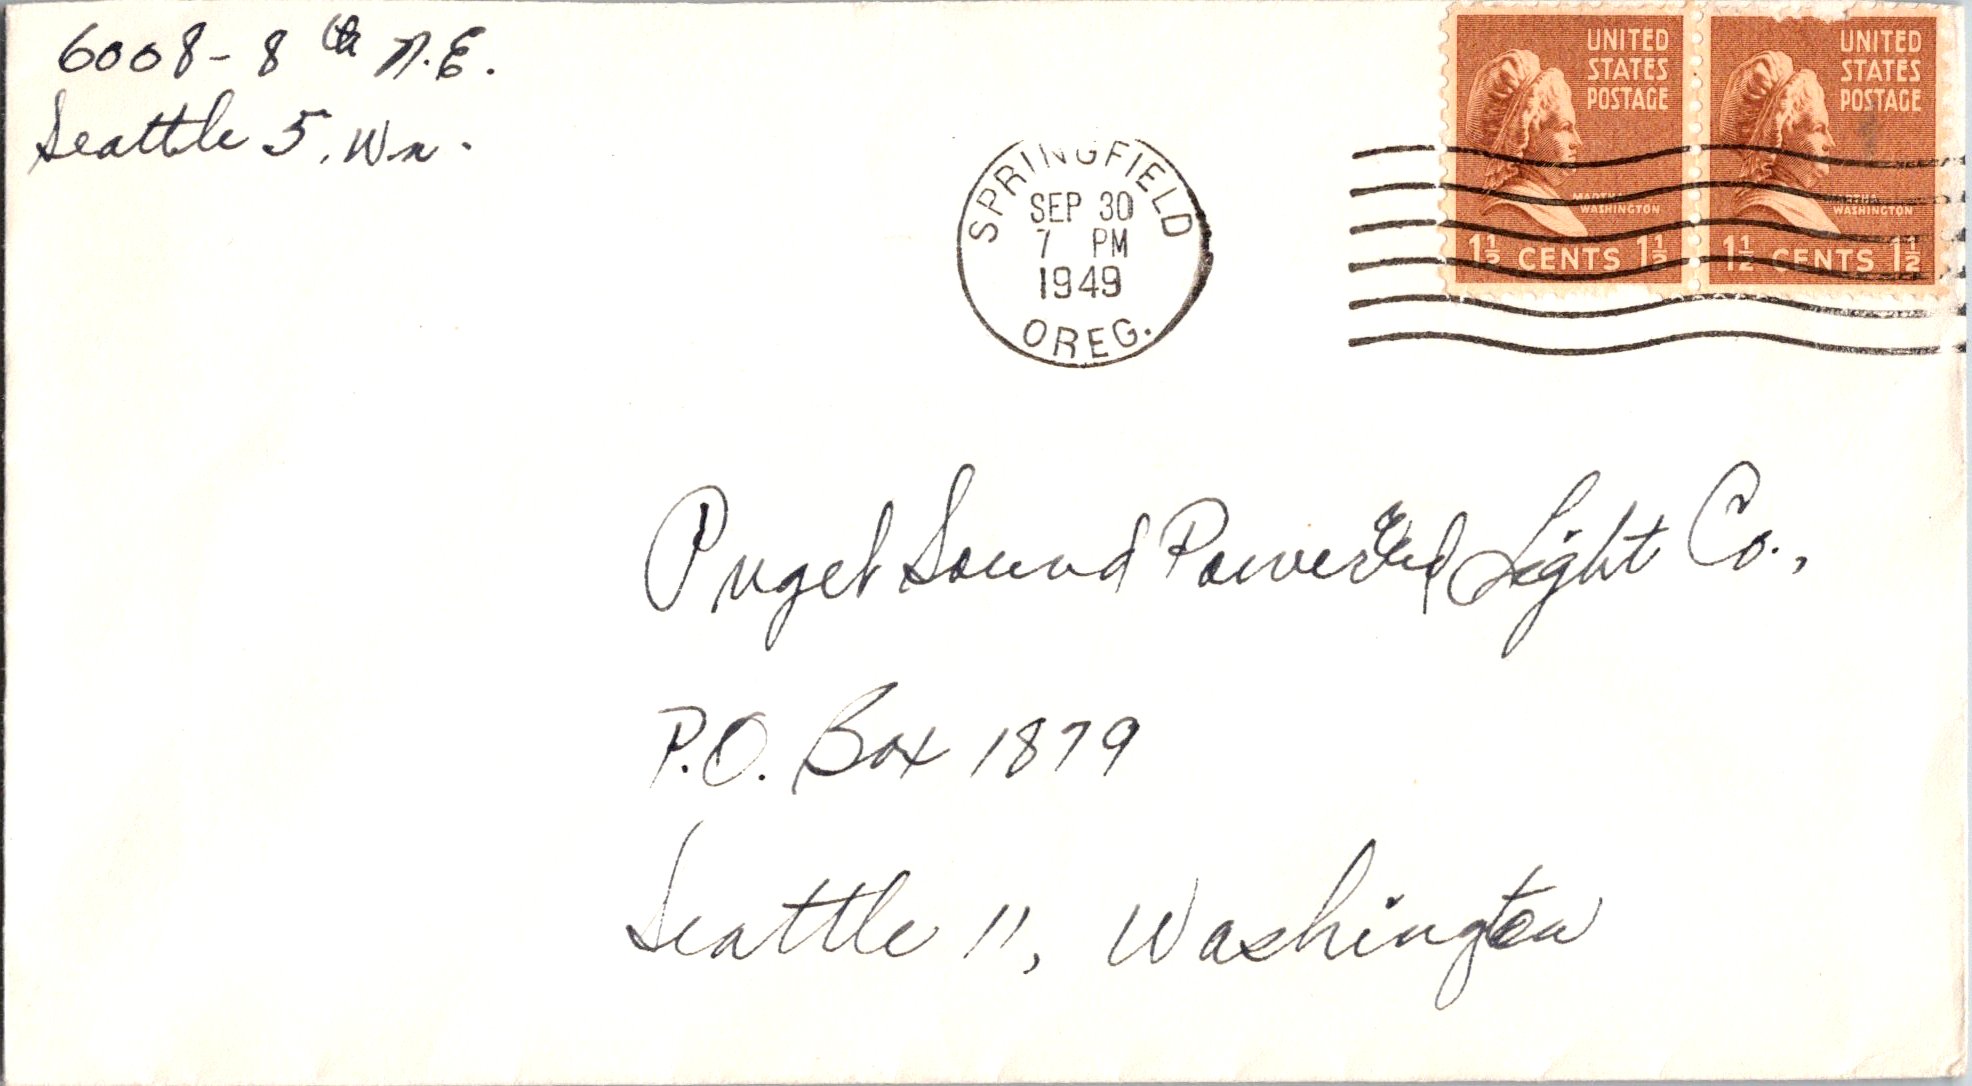 6008 - 8th N.E.
Seattle 5, Wn.
SPRINGFIELD
SEP 30
7 PM
1949
OREG.
UNITED
STATES
POSTAGE
MARTHA
WASHINGTON
1½ CENTS 1½
UNITED
STATES
POSTAGE
MARTHA
WASHINGTON
1½ CENTS 1½
Puget Sound Power and Light Co.,
P.O. Box 1879
Seattle 11, Washington